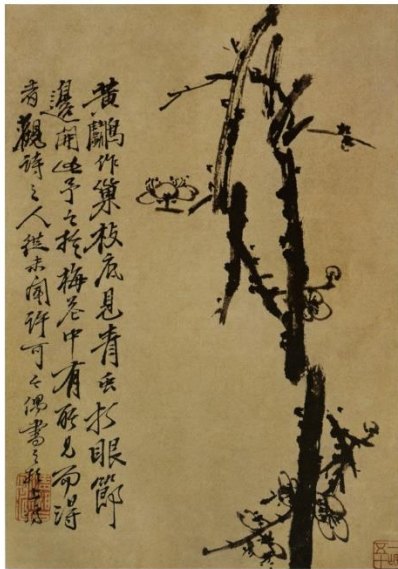 黄鸝作巢枝底見青虫於眼節
邊閒此予之於梅花中有所見而得
者觀詩之人從未聞許可之偶書之